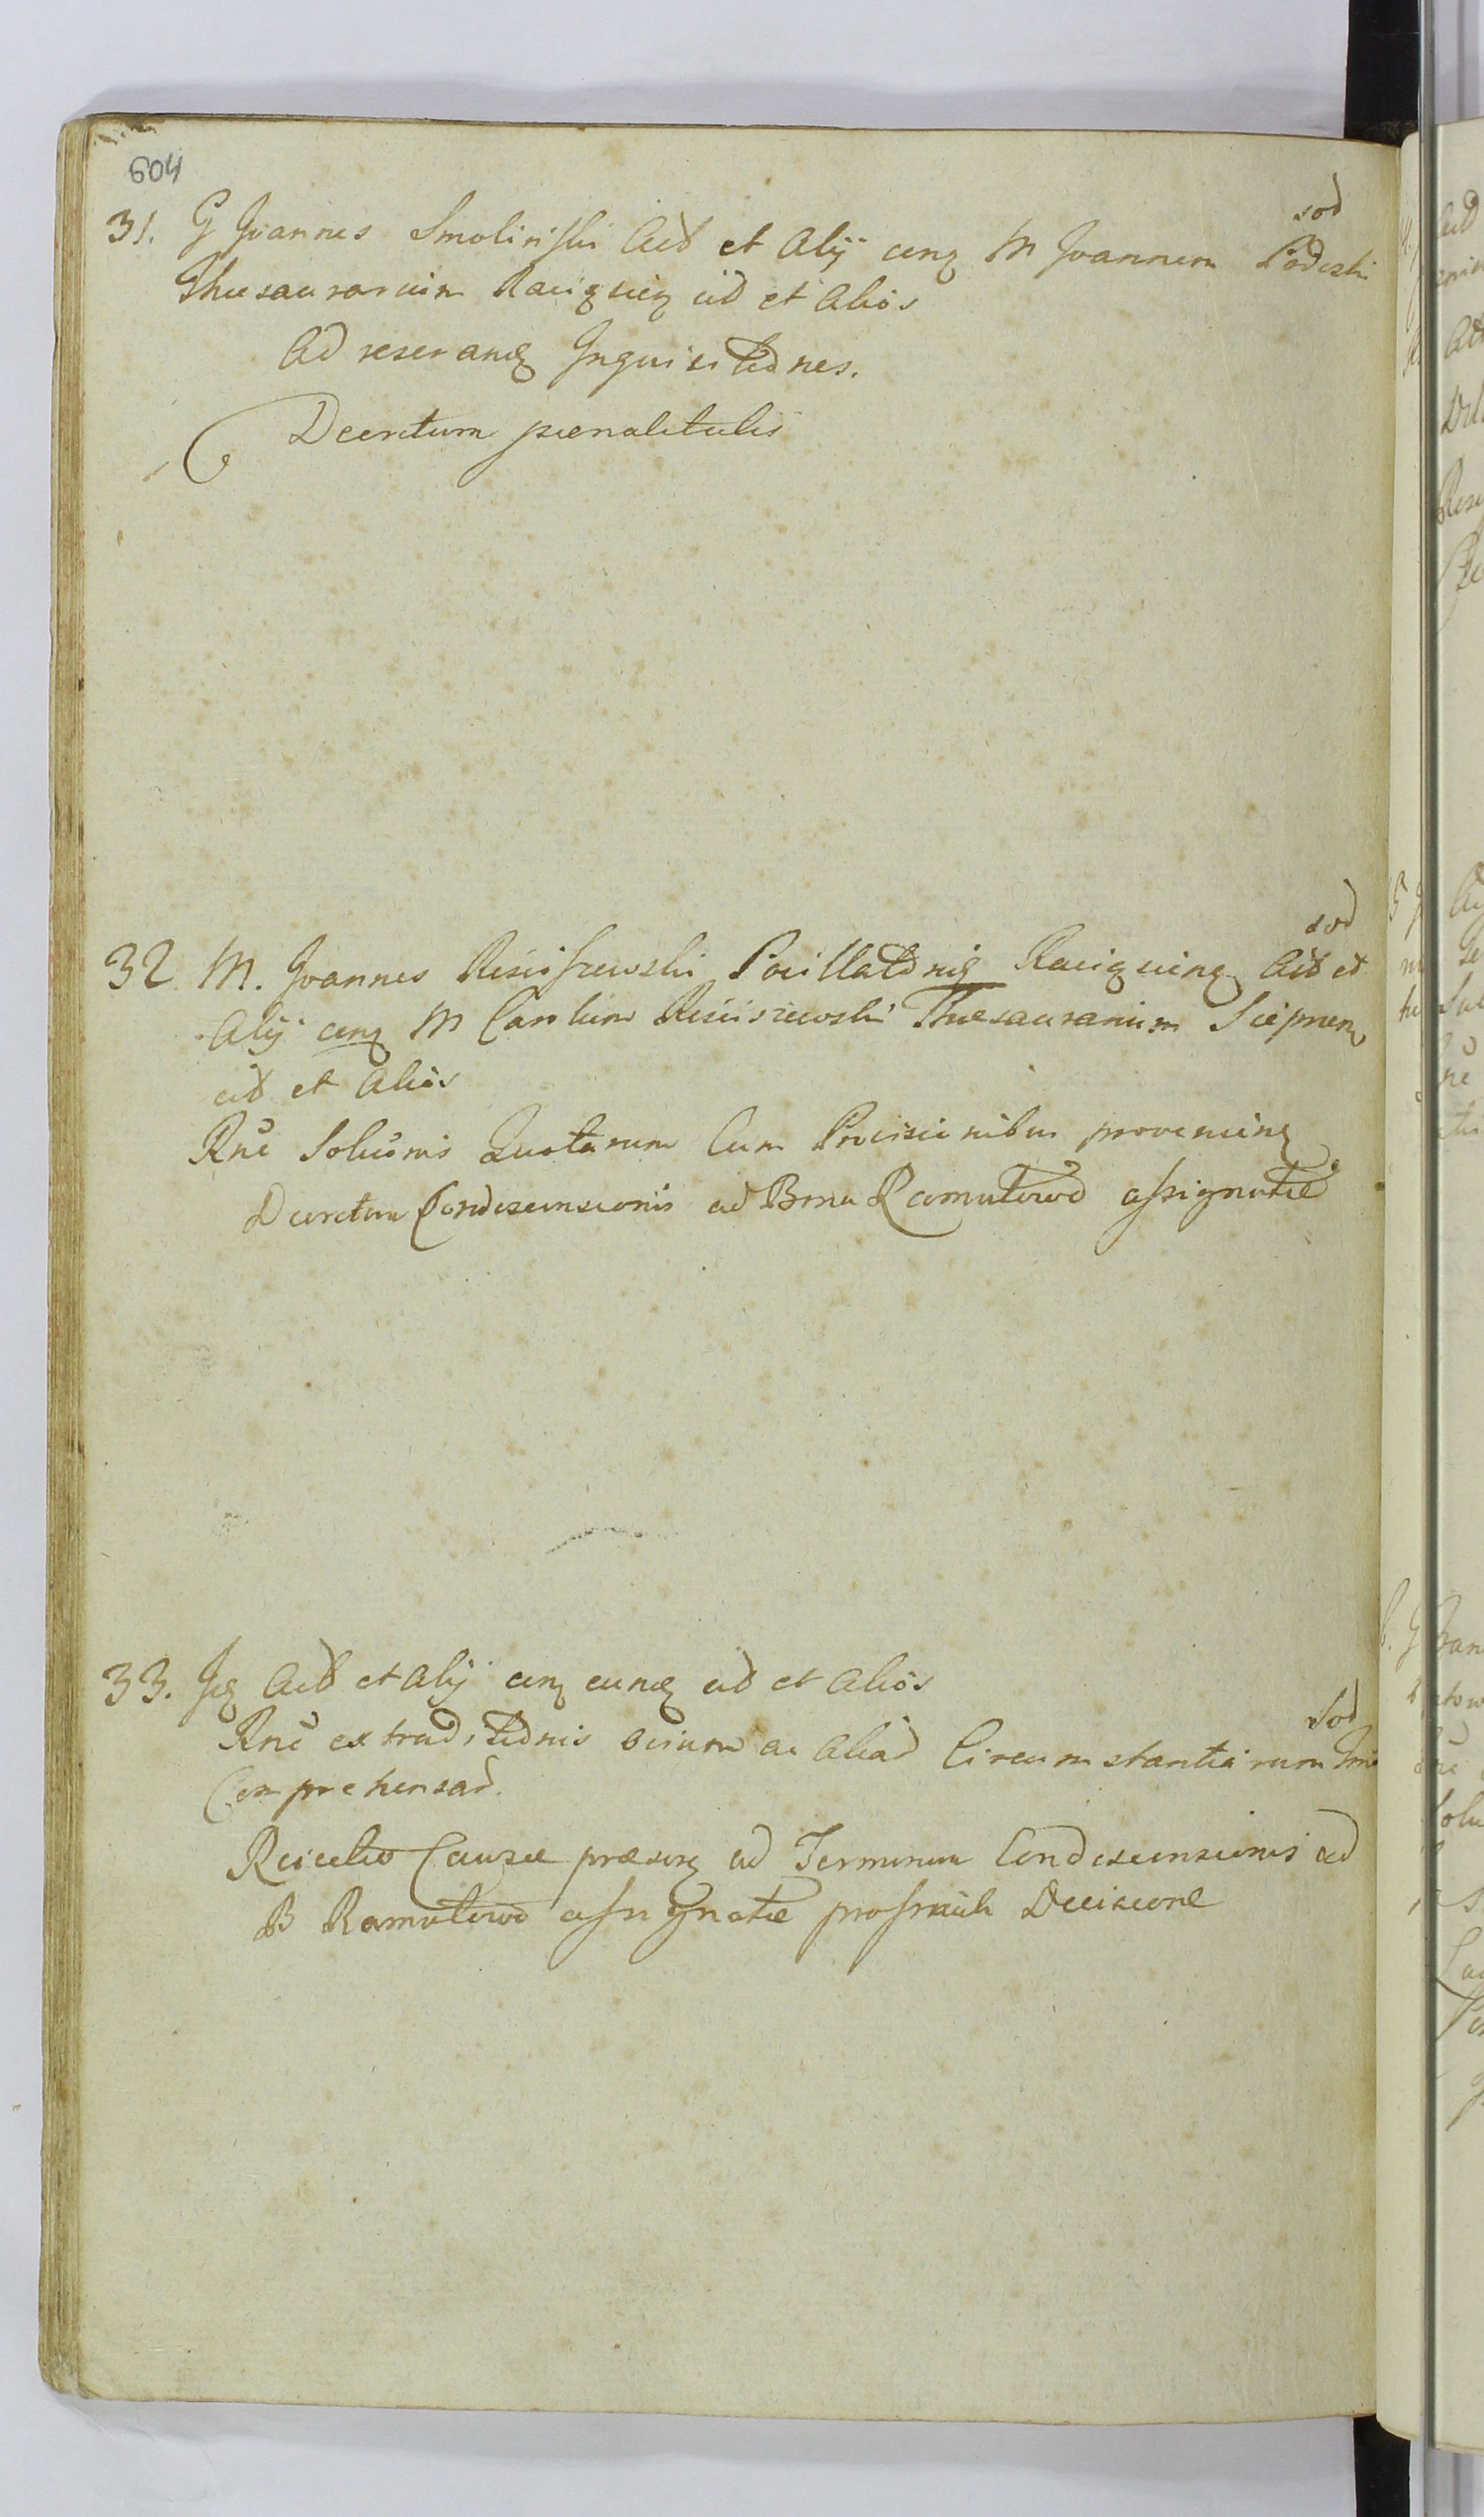 604
sod
31. G Joannes Smolinski Act et Alij cong M Joannem Podoski
Thesaurarium Raciązien ad et Alios
Ad reserand Inquisitiones.
Decretum poenalitatis
sod
32. M. Joannes Kisciszewski Raciązien Act et
Alij cong M Carolum Kisciszewski Thesaurarium Sieprcen
ad et Alios
Rne Soluonis Quotarum Cum Provisionibus provenien
Decretum Condescensionis ad Bona Ramutowo assignatae
33. Idq Act et Alij cong eund ad et Alios
sod
Rne extraditionis ac aliad Circumstantiarum Trno
Comprehensad.
Reiectio Causae praesen ad Terminum Condescensionis ad
B Ramutowo assignatae Decisione